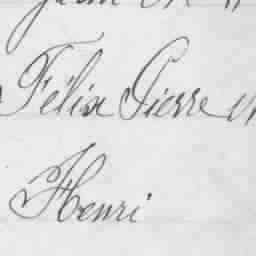 Félix Pierre
Henri